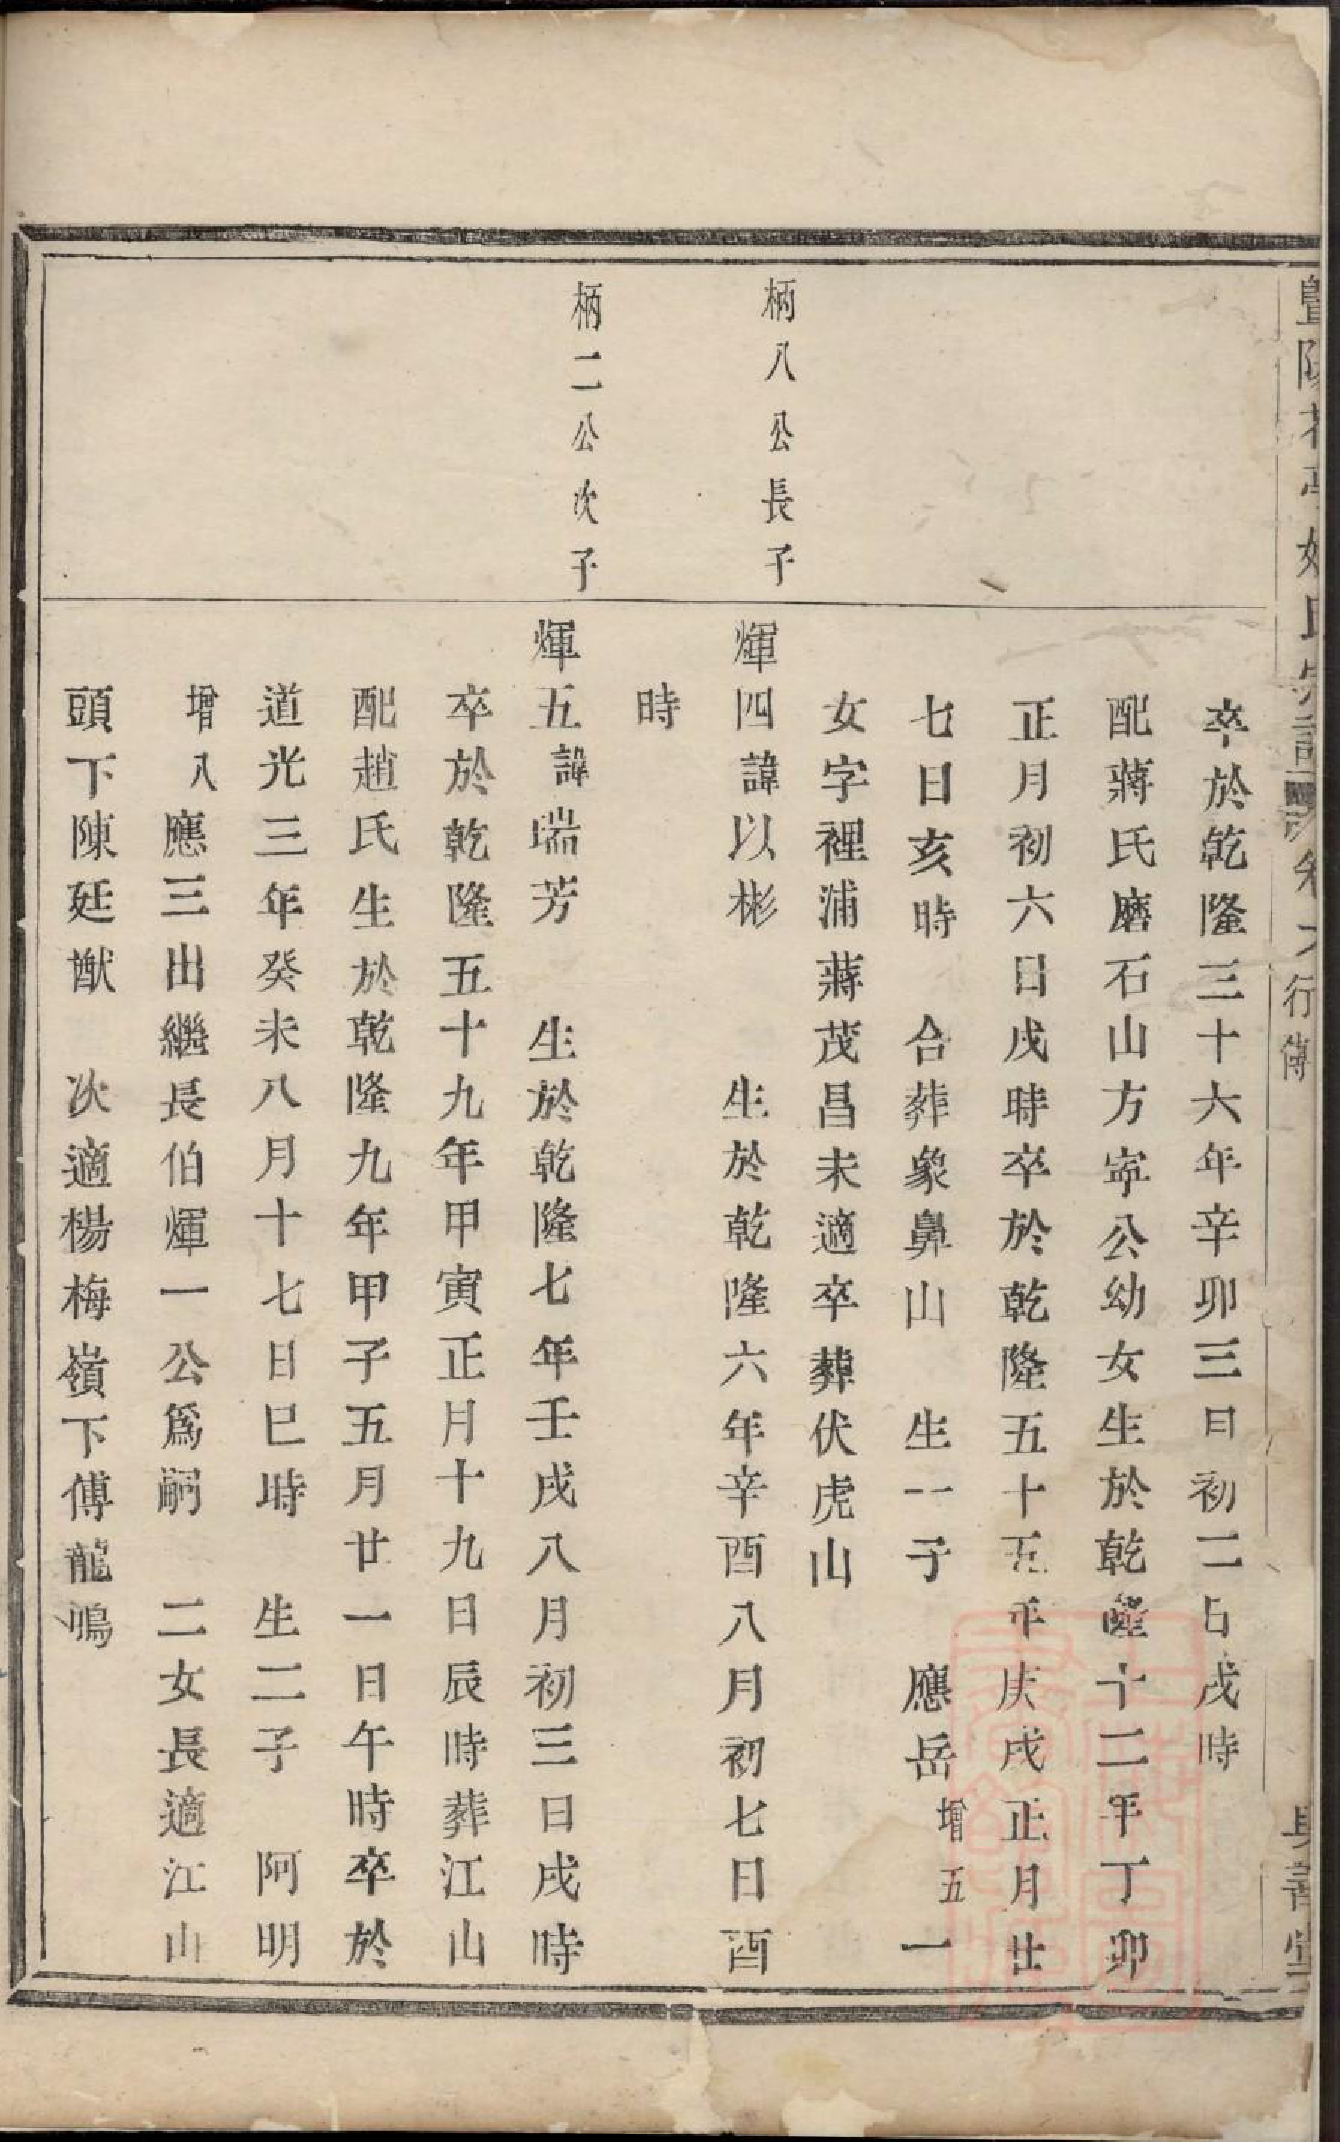 卒於乾隆三十六年辛卯三日初二日戌時
配蔣氏磨石山方寧公幼女生於乾隆十二年丁卯
正月初六日戌時卒於乾隆五十五年庚戌正月廿
七日亥時 合葬象鼻山 生一子 應岳增五一
女字裡浦蔣茂昌未適卒葬伏虎山
柄八公長子
煇四諱以彬 生於乾隆六年辛酉八月初七日酉
時
柄二公次子
煇五諱瑞芳 生於乾隆七年壬戌八月初三日戌時
卒於乾隆五十九年甲寅正月十九日辰時葬江山
配趙氏生於乾隆九年甲子五月廿一日午時卒於
道光三年癸未八月十七日巳時 生二子 阿明
增八應三出繼長伯煇一公爲嗣 二女長適江山
頭下陳廷猷 次適楊梅嶺下傅龍鳴